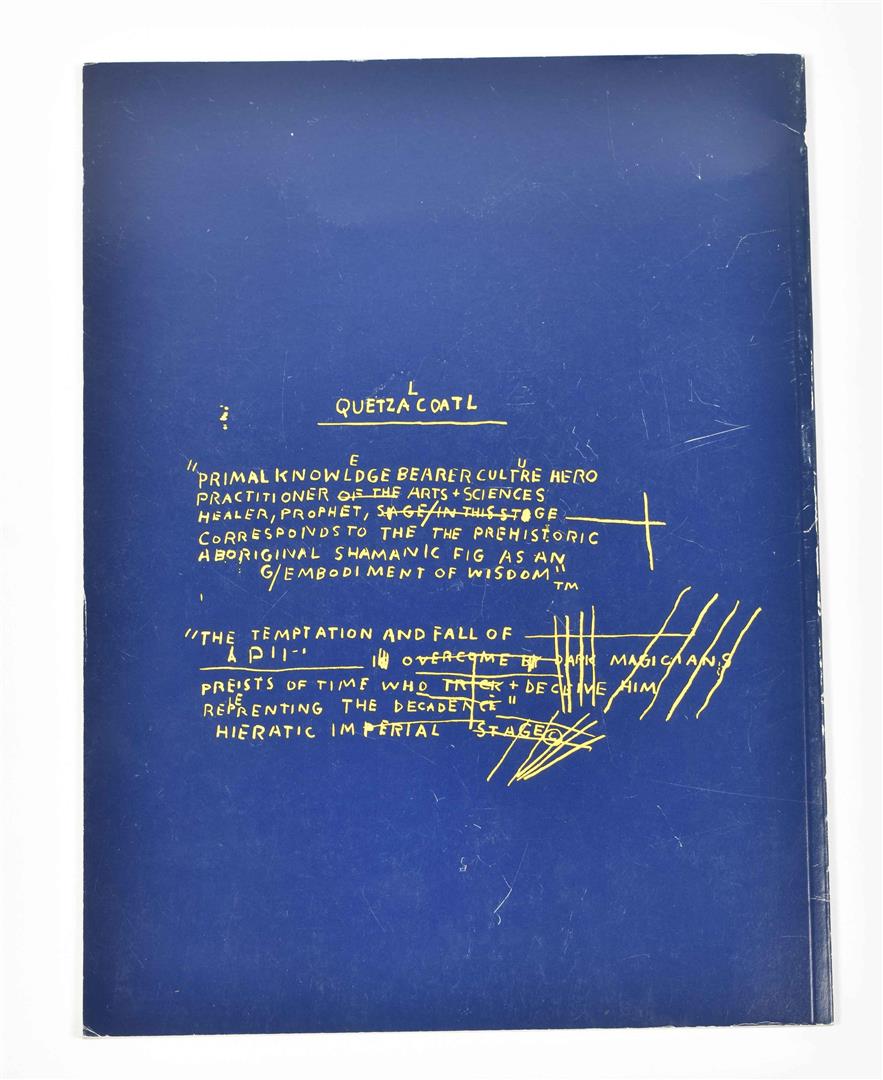 QUETZALCOATL
"PRIMAL KNOWLEDGE BEARER CULTURE HERO
PRACTITIONER OF THE ARTS + SCIENCES
HEALER, PROPHET, SAGE/IN THIS STAGE
CORRESPONDS TO THE THE PREHISTORIC
ABORIGINAL SHAMANIC FIG AS AN
G/EMBODIMENT OF WISDOM"TM
"THE TEMPTATION AND FALL OF
OVERCOME BY DARK MAGICIANS
PREISTS OF TIME WHO TRICK + DECEIVE HIM
REPRENTING THE DECADENCE"
HIERATIC IMPERIAL STAGE©